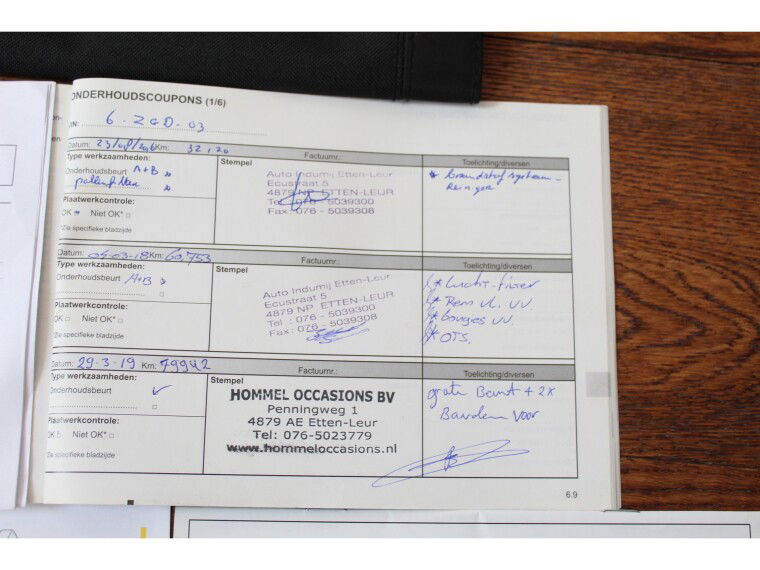 ONDERHOUDSCOUPONS (1/6)
6-ZGD-03
Datum: 23/08/ Km: 32,
Type werkzaamheden:
Onderhoudsbeurt A+B
pollenfilter
Plaatwerkcontrole:
OK Niet OK*
*Zie specifieke bladzijde
Stempel
Factuurnr.:
Auto Indumij Etten-Leur
Ecustraat 5
4879 NP ETTEN-LEUR
Tel: 076 - 5039300
Fax: 076 - 5039308
Toelichting/diversen
* brandstofsysteem-
Reinigen
Datum: 05-03-18 Km: 60,753
Type werkzaamheden:
Onderhoudsbeurt A+B
Plaatwerkcontrole:
OK Niet OK*
*Zie specifieke bladzijde
Stempel
Factuurnr.:
Auto Indumij Etten-Leur
Ecustraat 5
4879 NP ETTEN-LEUR
Tel : 076 - 5039300
Fax: 076 - 5039308
Toelichting/diversen
* Lucht-filter
* Rem vl. VV
* Bougies VV
* OTS,
Datum: 29-3-19 Km: 79942
Type werkzaamheden:
Onderhoudsbeurt
Plaatwerkcontrole:
OK Niet OK*
*Zie specifieke bladzijde
Stempel
Factuurnr.:
HOMMEL OCCASIONS BV
Penningweg 1
4879 AE Etten-Leur
Tel: 076-5023779
www.hommeloccasions.nl
Toelichting/diversen
grote Beurt + 2x
Banden Voor
6.9